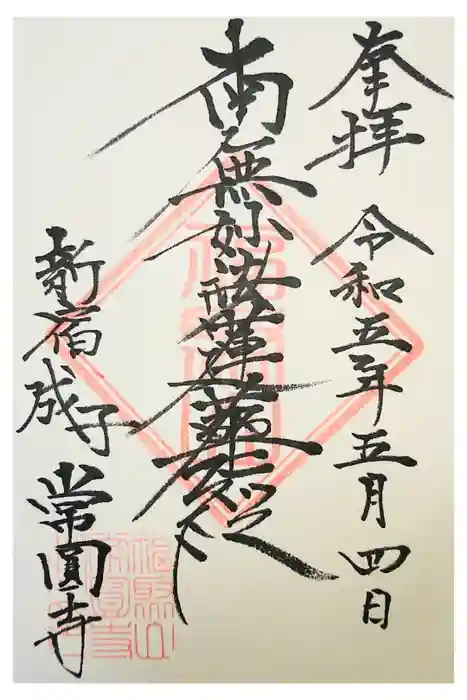 奉拝 令和五年五月四日
南無妙法蓮華経
新宿成子 常圓寺